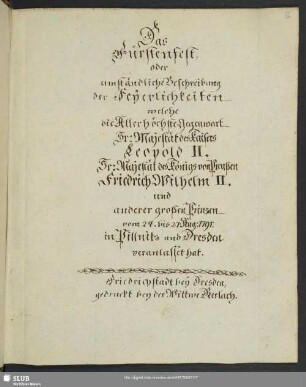 Das
Fürstenfest,
oder
umständliche Beschreibung
der Feyerlichkeiten
welche
die Allerhöchste Gegenwart
Sr: Majestät des Kaisers
Leopold II.
Sr: Majestät des Königs von Preußen
Friedrich Wilhelm II.
und
anderer großen Prinzen
vom 24. bis 27. Aug. 1791.
in Pillnitz und Dresden
veranlasset hat.
Friedrichstadt bey Dresden,
gedruckt bey der Wittwe Gerlach.
SLUB